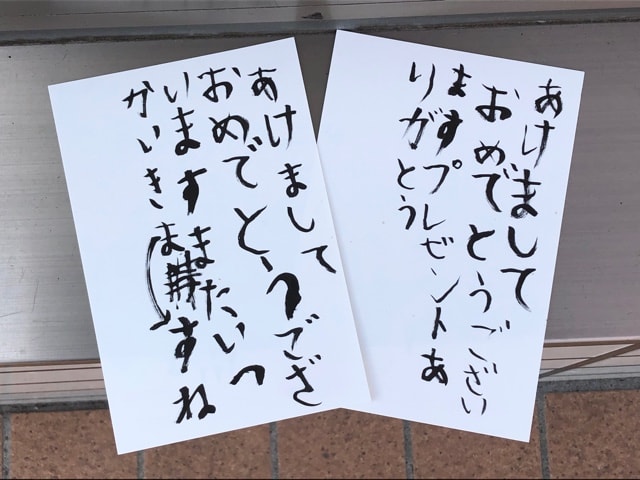 あけまして
おめでとうござ
いますまたいつ
かいきますね
あけまして
おめでとうござい
ますプレゼントあ
りがとう